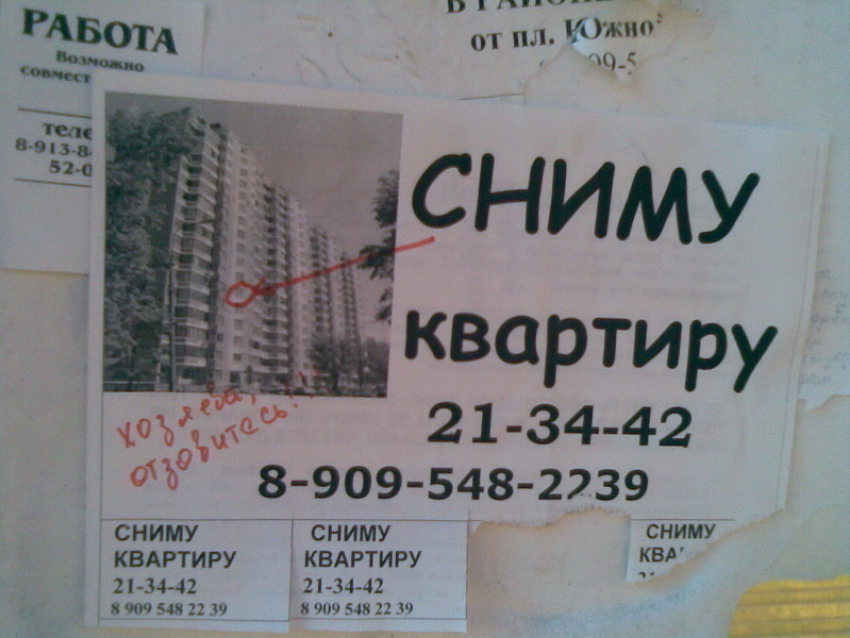 РАБОТА
Возможно
совмест
теле
8-913-8
52-0
В РАЙОНЕ
от пл. Южно
09-5
СНИМУ
квартиру
21-34-42
8-909-548-2239
хозяева,
отзовитесь!!!
СНИМУ
КВАРТИРУ
21-34-42
8 909 548 22 39
СНИМУ
КВАРТИРУ
21-34-42
8 909 548 22 39
СНИМУ
КВА